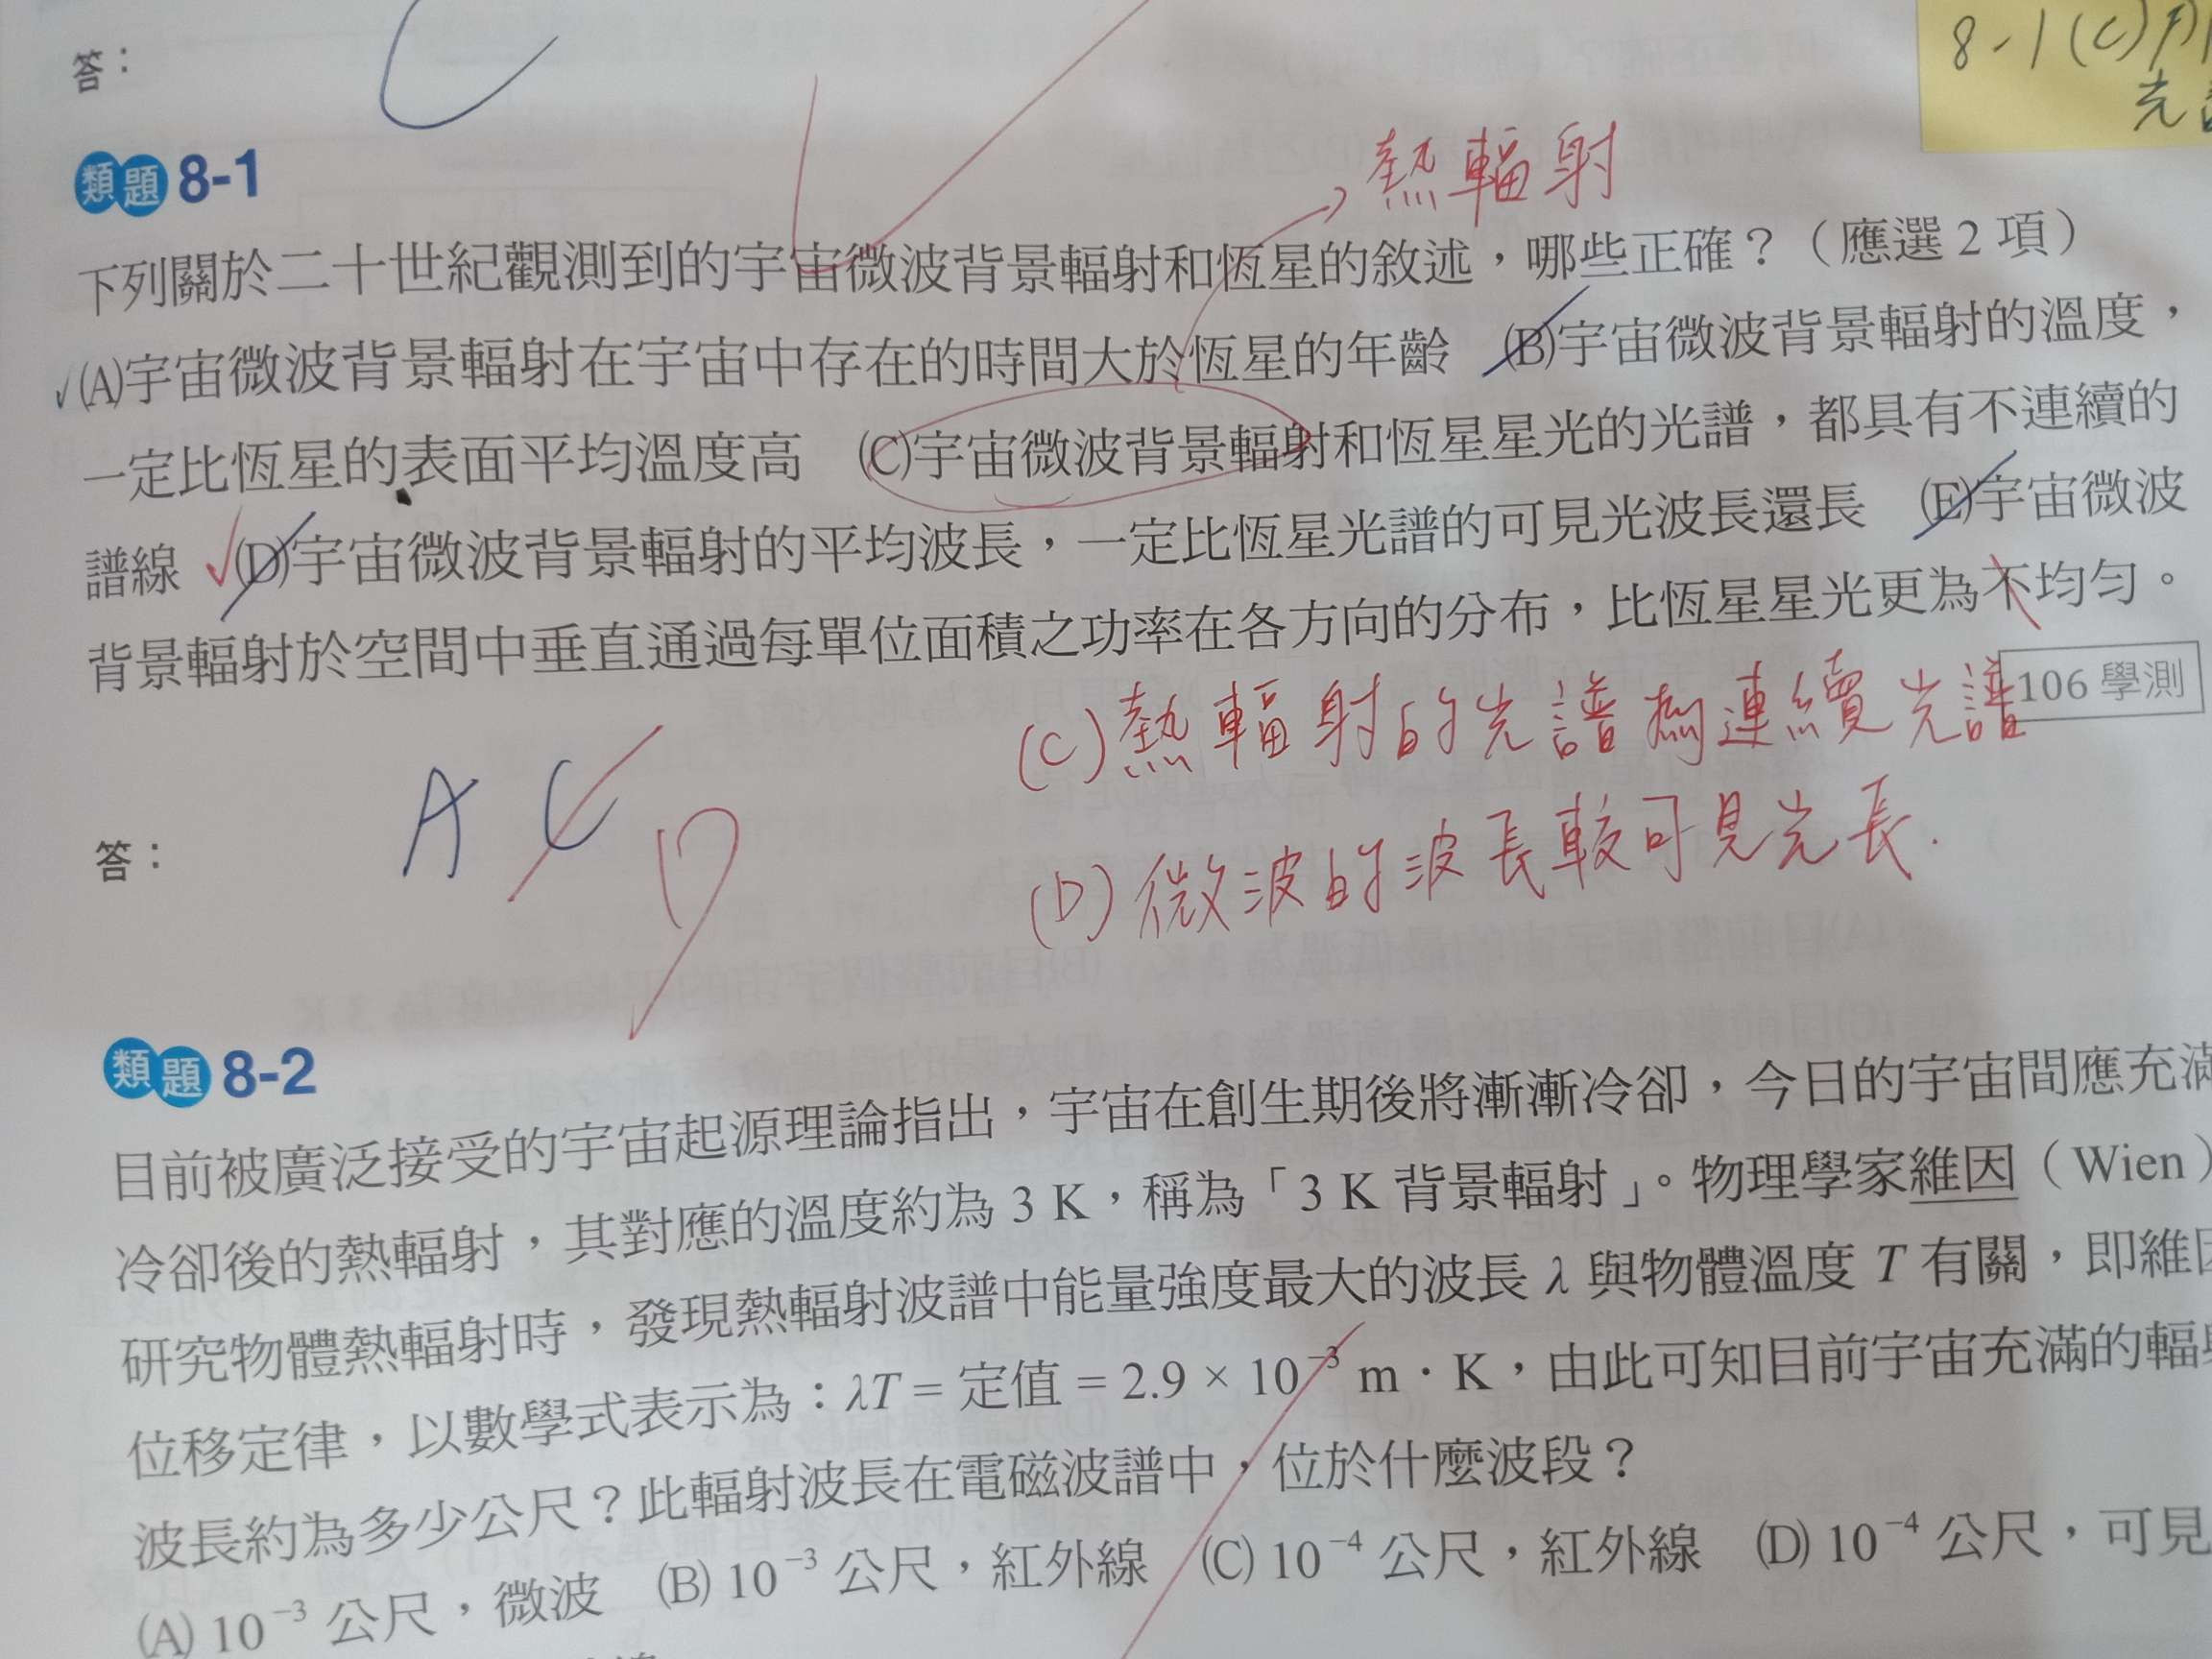 8-1(C)
光譜
答：
C
類題 8-1
熱輻射
下列關於二十世紀觀測到的宇宙微波背景輻射和恆星的敘述，哪些正確？（應選 2 項）
(A)宇宙微波背景輻射在宇宙中存在的時間大於恆星的年齡　(B)宇宙微波背景輻射的溫度，
一定比恆星的表面平均溫度高　(C)宇宙微波背景輻射和恆星星光的光譜，都具有不連續的
譜線　(D)宇宙微波背景輻射的平均波長，一定比恆星光譜的可見光波長還長　(E)宇宙微波
背景輻射於空間中垂直通過每單位面積之功率在各方向的分布，比恆星星光更為不均勻。
106 學測
(C)熱輻射的光譜為連續光譜
(D)微波的波長較可見光長.
答：
A C D
類題 8-2
目前被廣泛接受的宇宙起源理論指出，宇宙在創生期後將漸漸冷卻，今日的宇宙間應充滿
冷卻後的熱輻射，其對應的溫度約為 3 K，稱為「3 K 背景輻射」。物理學家維因（Wien）
研究物體熱輻射時，發現熱輻射波譜中能量強度最大的波長 λ 與物體溫度 T 有關，即維因
位移定律，以數學式表示為：λT = 定值 = 2.9 × 10⁻³ m · K，由此可知目前宇宙充滿的輻射
波長約為多少公尺？此輻射波長在電磁波譜中，位於什麼波段？
(A) 10⁻³ 公尺，微波　(B) 10⁻³ 公尺，紅外線　(C) 10⁻⁴ 公尺，紅外線　(D) 10⁻⁴ 公尺，可見